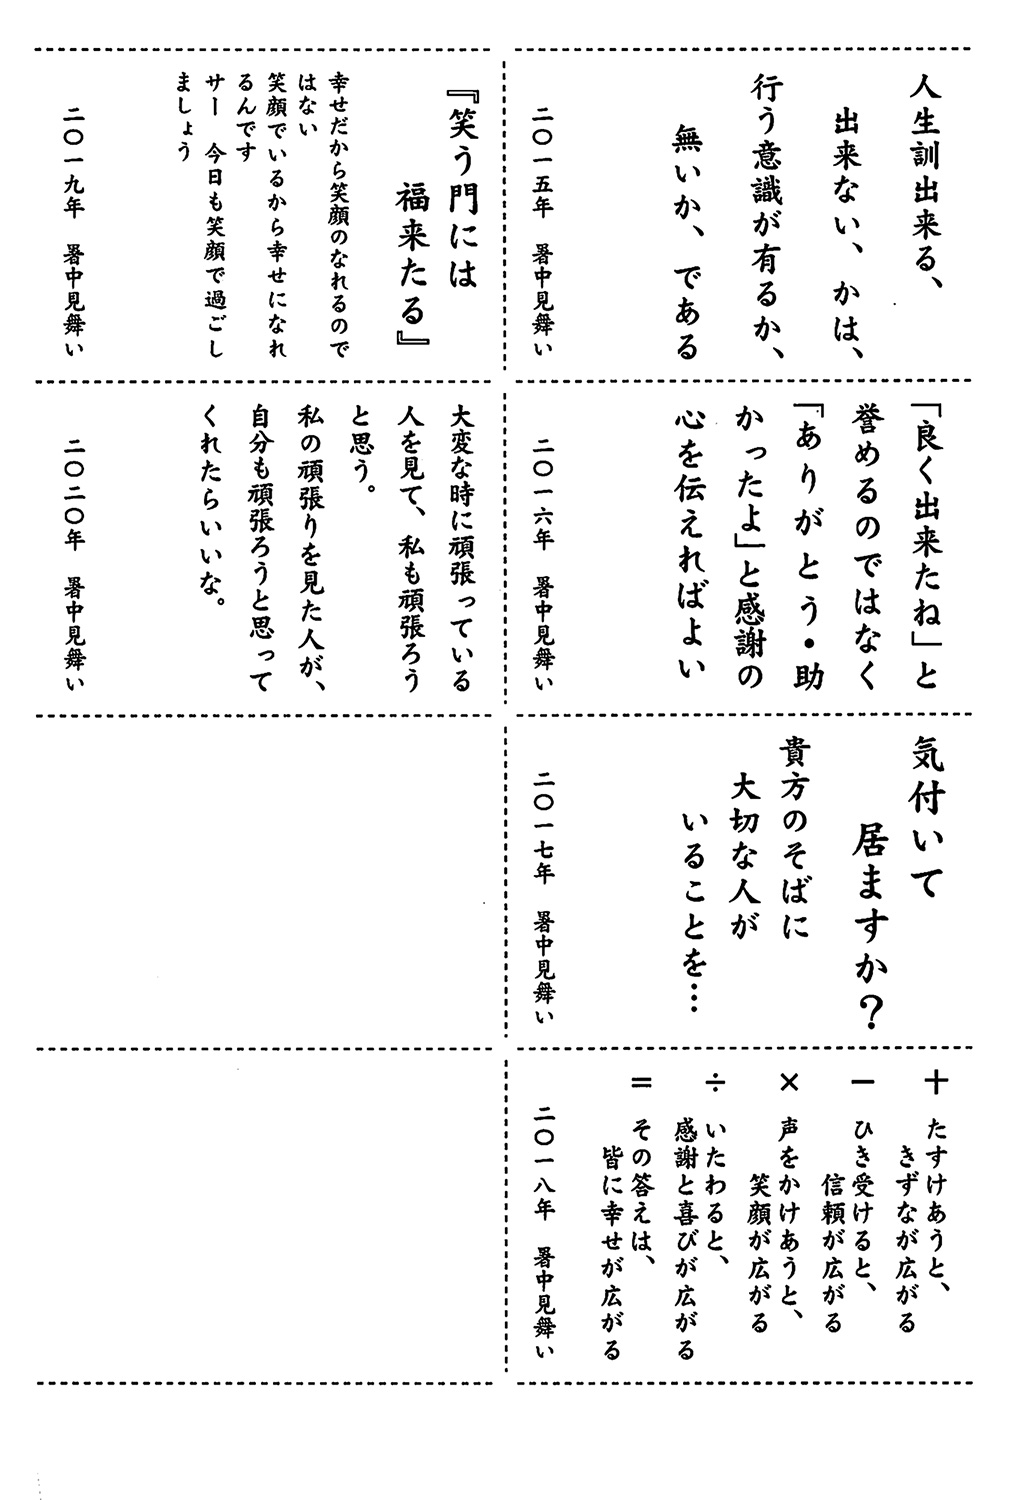 人生訓出来る、
出来ない、かは、
行う意識が有るか、
無いか、である
二〇一五年　暑中見舞い
「良く出来たね」と
誉めるのではなく
「ありがとう・助
かったよ」と感謝の
心を伝えればよい
二〇一六年　暑中見舞い
気付いて
居ますか？
貴方のそばに
大切な人が
いることを…
二〇一七年　暑中見舞い
＋　たすけあうと、
きずなが広がる
－　ひき受けると、
信頼が広がる
×　声をかけあうと、
笑顔が広がる
÷　いたわると、
感謝と喜びが広がる
＝　その答えは、
皆に幸せが広がる
二〇一八年　暑中見舞い
『笑う門には
福来たる』
幸せだから笑顔のなれるので
はない
笑顔でいるから幸せになれ
るんです
サー　今日も笑顔で過ごし
ましょう
二〇一九年　暑中見舞い
大変な時に頑張っている
人を見て、私も頑張ろう
と思う。
私の頑張りを見た人が、
自分も頑張ろうと思って
くれたらいいな。
二〇二〇年　暑中見舞い